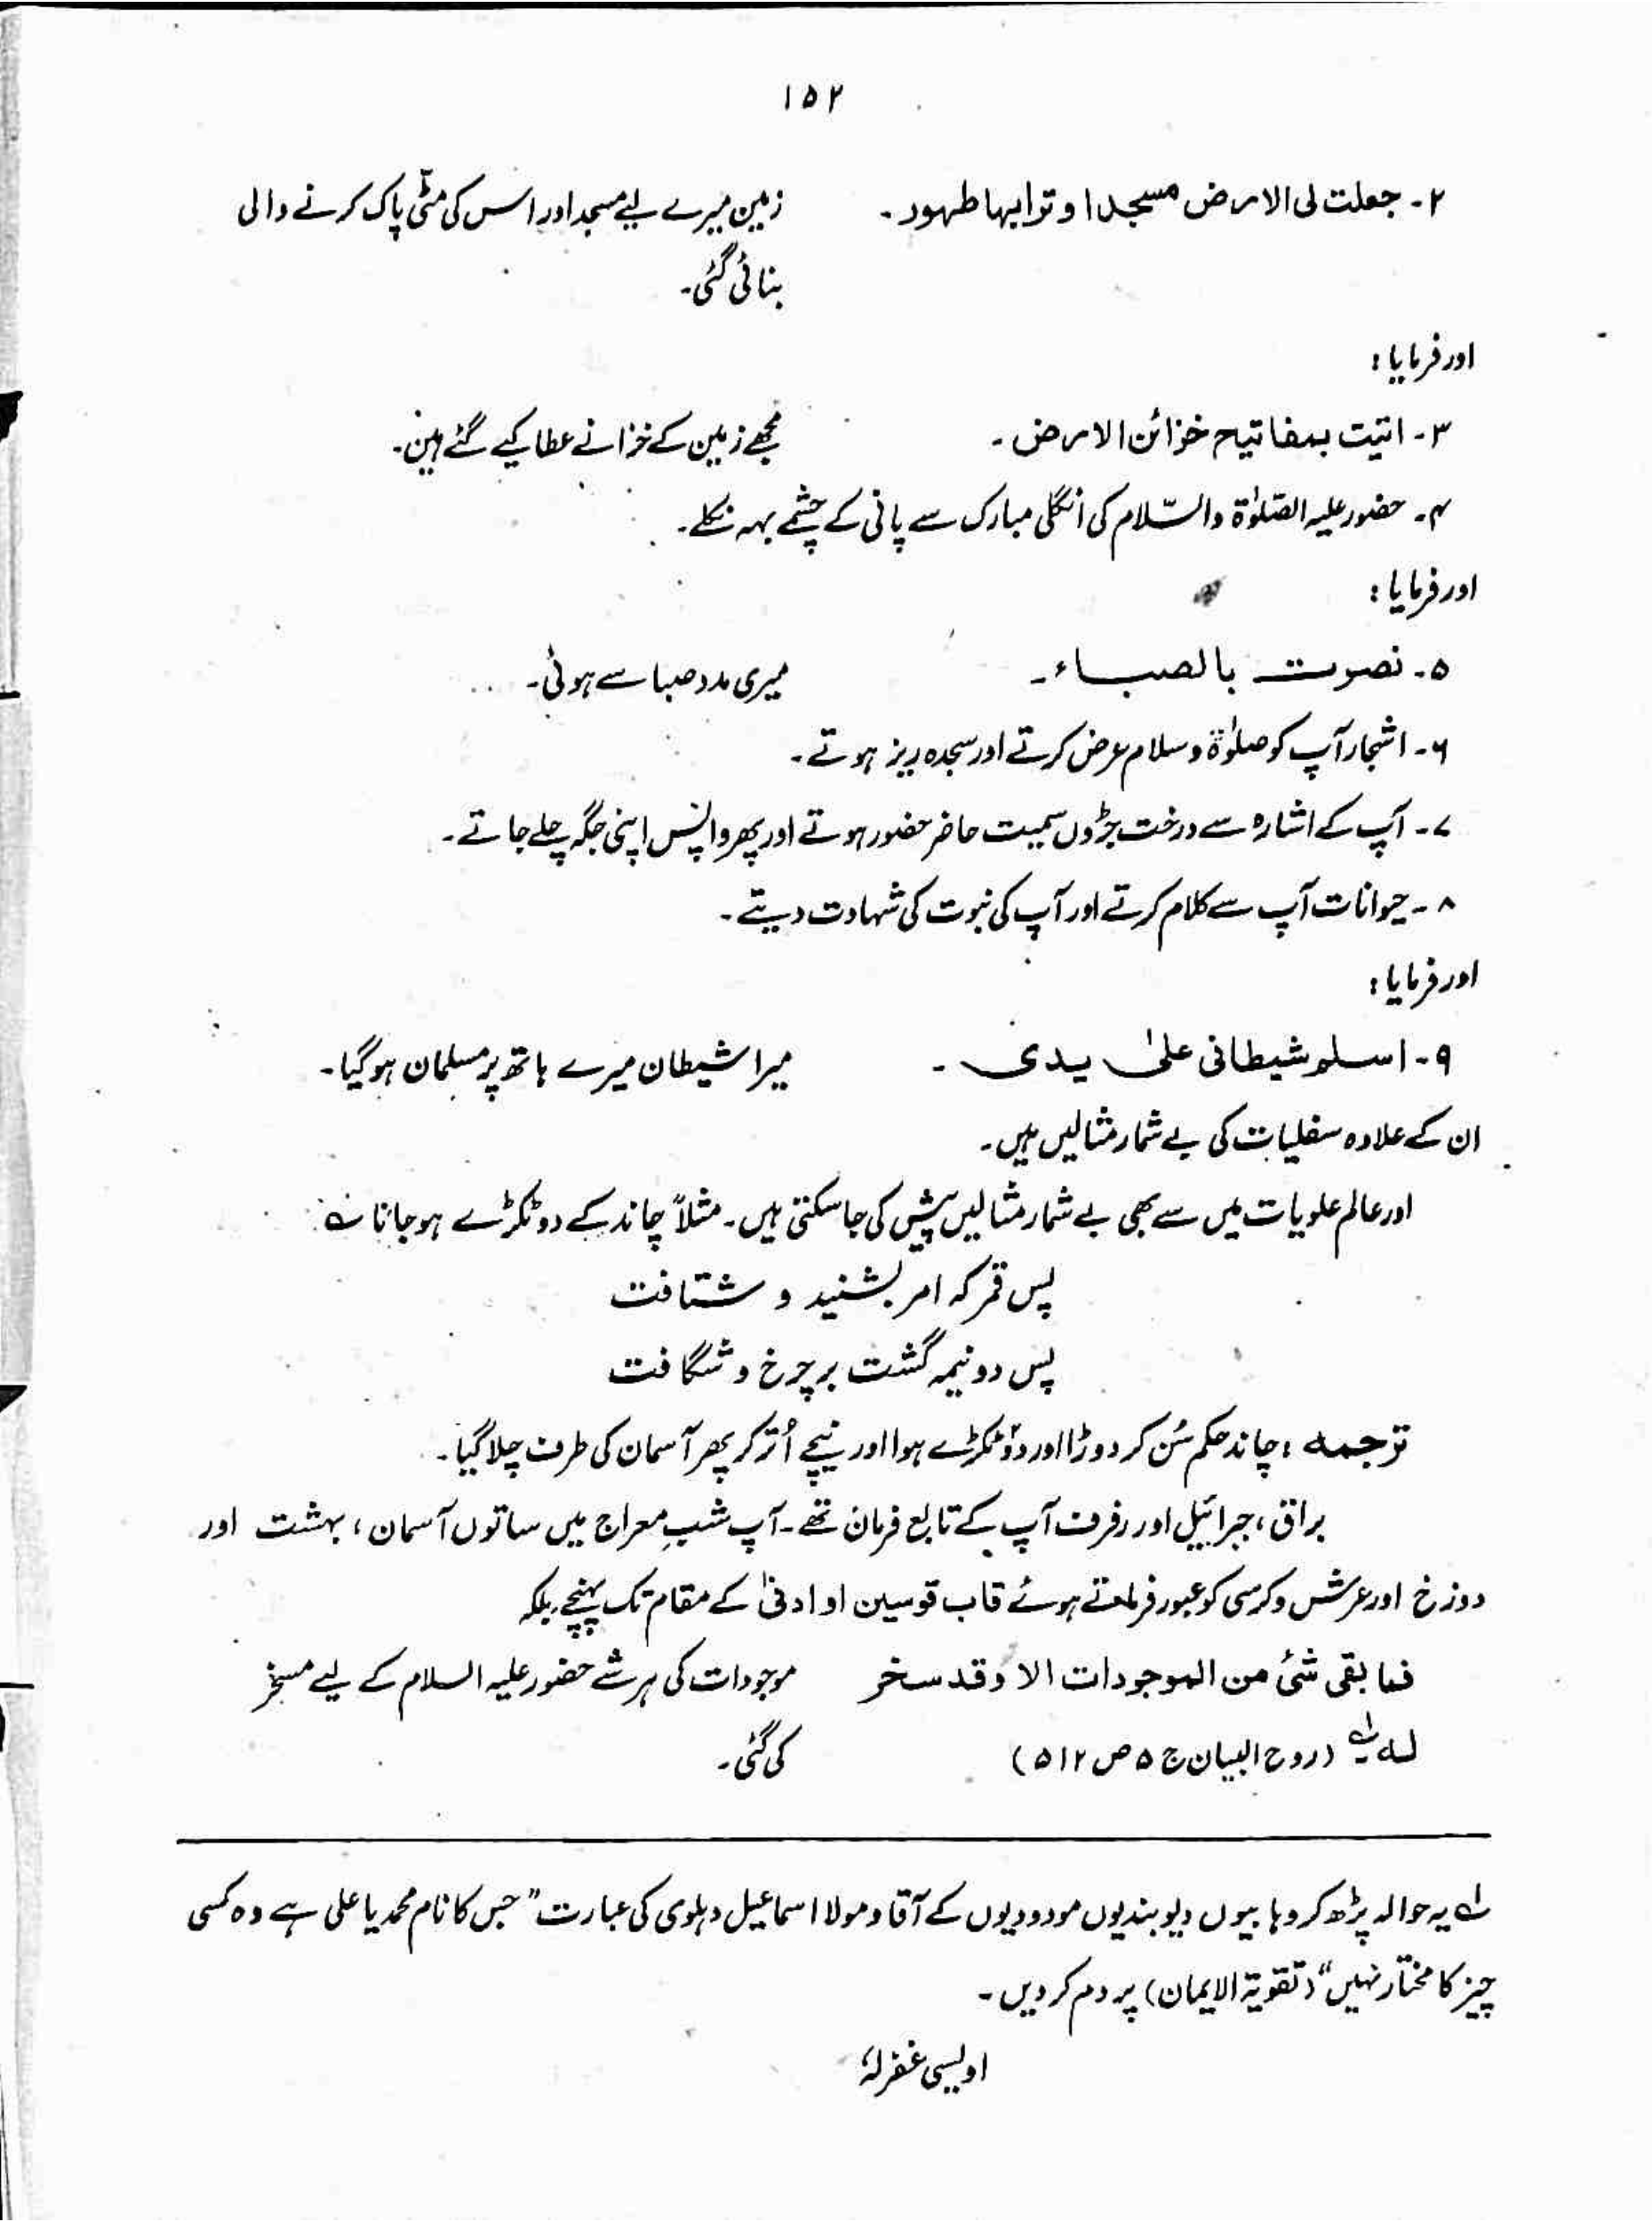 ۱۵۲
۲۔ جعلت لی الارض مسجدا و ترابہا طہور۔ زمین میرے لیے مسجد اور اس کی مٹی پاک کرنے والی
بنائی گئی۔
اور فرمایا:
۳۔ اتیت بمفاتیح خزائن الارض۔ مجھے زمین کے خزانے عطا کیے گئے ہیں۔
۴۔ حضور علیہ الصّلوٰۃ والسّلام کی انگلی مبارک سے پانی کے چشمے بہہ نکلے۔
اور فرمایا:
۵۔ نصرت بالصباء۔ میری مدد صبا سے ہوئی۔
۶۔ اشجار آپ کو صلوٰۃ و سلام عرض کرتے اور سجدہ ریز ہوتے۔
۷۔ آپ کے اشارہ سے درخت جڑوں سمیت حاضر حضور ہوتے اور پھر واپس اپنی جگہ چلے جاتے۔
۸۔ حیوانات آپ سے کلام کرتے اور آپ کی نبوت کی شہادت دیتے۔
اور فرمایا:
۹۔ اسلم شیطانی علیٰ یدی۔ میرا شیطان میرے ہاتھ پر مسلمان ہوگیا۔
ان کے علاوہ سفلیات کی بے شمار مثالیں ہیں۔
اور عالم علویات میں سے بھی بے شمار مثالیں پیش کی جاسکتی ہیں۔ مثلاً چاند کے دو ٹکڑے ہوجانا
پس قمر کہ امر بشنید و شتافت
پس دو نیمہ گشت بر چرخ و شگافت
ترجمہ: چاند حکم سُن کر دوڑا اور دو ٹکڑے ہوا اور نیچے اُتر کر پھر آسمان کی طرف چلا گیا۔
براق، جبرائیل اور رفرف آپ کے تابع فرمان تھے۔ آپ شبِ معراج میں ساتوں آسمان، بہشت اور
دوزخ اور عرش و کرسی کو عبور فرماتے ہوئے قاب قوسین او ادنیٰ کے مقام تک پہنچے بلکہ
فما بقی شئ من الموجودات الا وقد سخر موجودات کی ہر شے حضور علیہ السلام کے لیے مسخر
لہ لے (روح البیان ج ۵ ص ۵۱۲) کی گئی۔
لے یہ حوالہ پڑھ کر وہابیوں دیوبندیوں مودودیوں کے آقا و مولا اسماعیل دہلوی کی عبارت "جس کا نام محمد یا علی ہے وہ کسی
چیز کا مختار نہیں" (تقویۃ الایمان) پر دم کردیں۔
اویسی غفرلہٗ